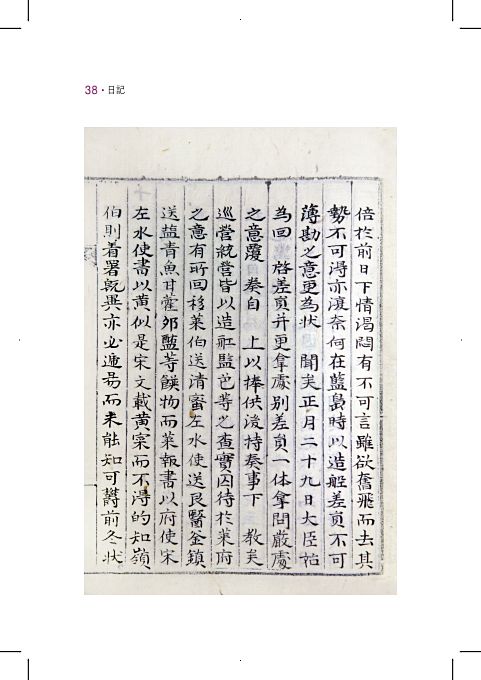 38 · 日記
倍於前日下情渴悶有不可言雖欲奮飛而去其
勢不可得亦復奈何在藍島時以造船差員不可
薄勘之意更爲狀 聞矣正月二十九日大臣祐
爲回 啓差員幷更拿處別差員一体拿問嚴處
之意覆 奏自 上以捧供後持奏事下 教矣
巡營統營皆以造舡監色等之查實囚待於萊府
之意有所回移萊伯送清蜜左水使送艮醫釜鎮
送塩青魚甘藿邜醢等饌物而萊報書以府使宋
左水使書以黃似是宋文載黃寀而不得的知嶺
伯則着署旣異亦必遞易而未能知可鬱前冬狀